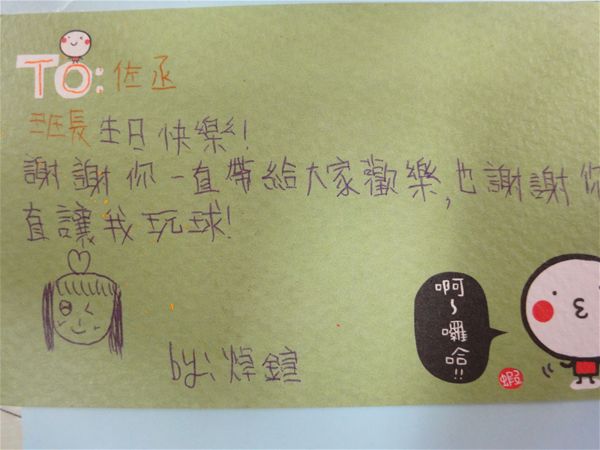 TO: 佐丞
班長生日快樂!
謝謝你一直帶給大家歡樂,也謝謝你
直讓我玩球!
啊～囉哈!!
蝦
by:煒鎧